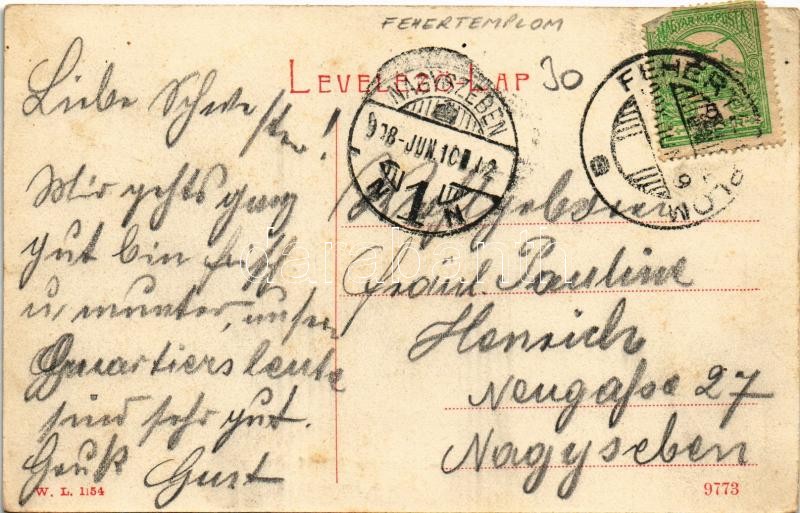 FEHERTEMPLOM
LEVELEZŐ-LAP
30
MAGYAR KIR. POSTA
FEHÉRTEMPLOM
NAGYSZEBEN
908-JUN.10
N 1 N
Liebe Schwe
ster!
Mir gehts ganz
gut bin frisch
u. munter, unsere
Quartiersleute
sind sehr gut.
Gruß Gust
Wohlgeboren
Fräul. Pauline
Henrich
Neugasse 27
Nagyseben
W. L. 1154
9773
darabanth